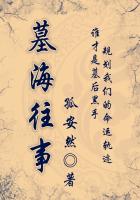 规划我们的命运轨迹
谁才是墓后黑手
墓海往事
孤安然◎著